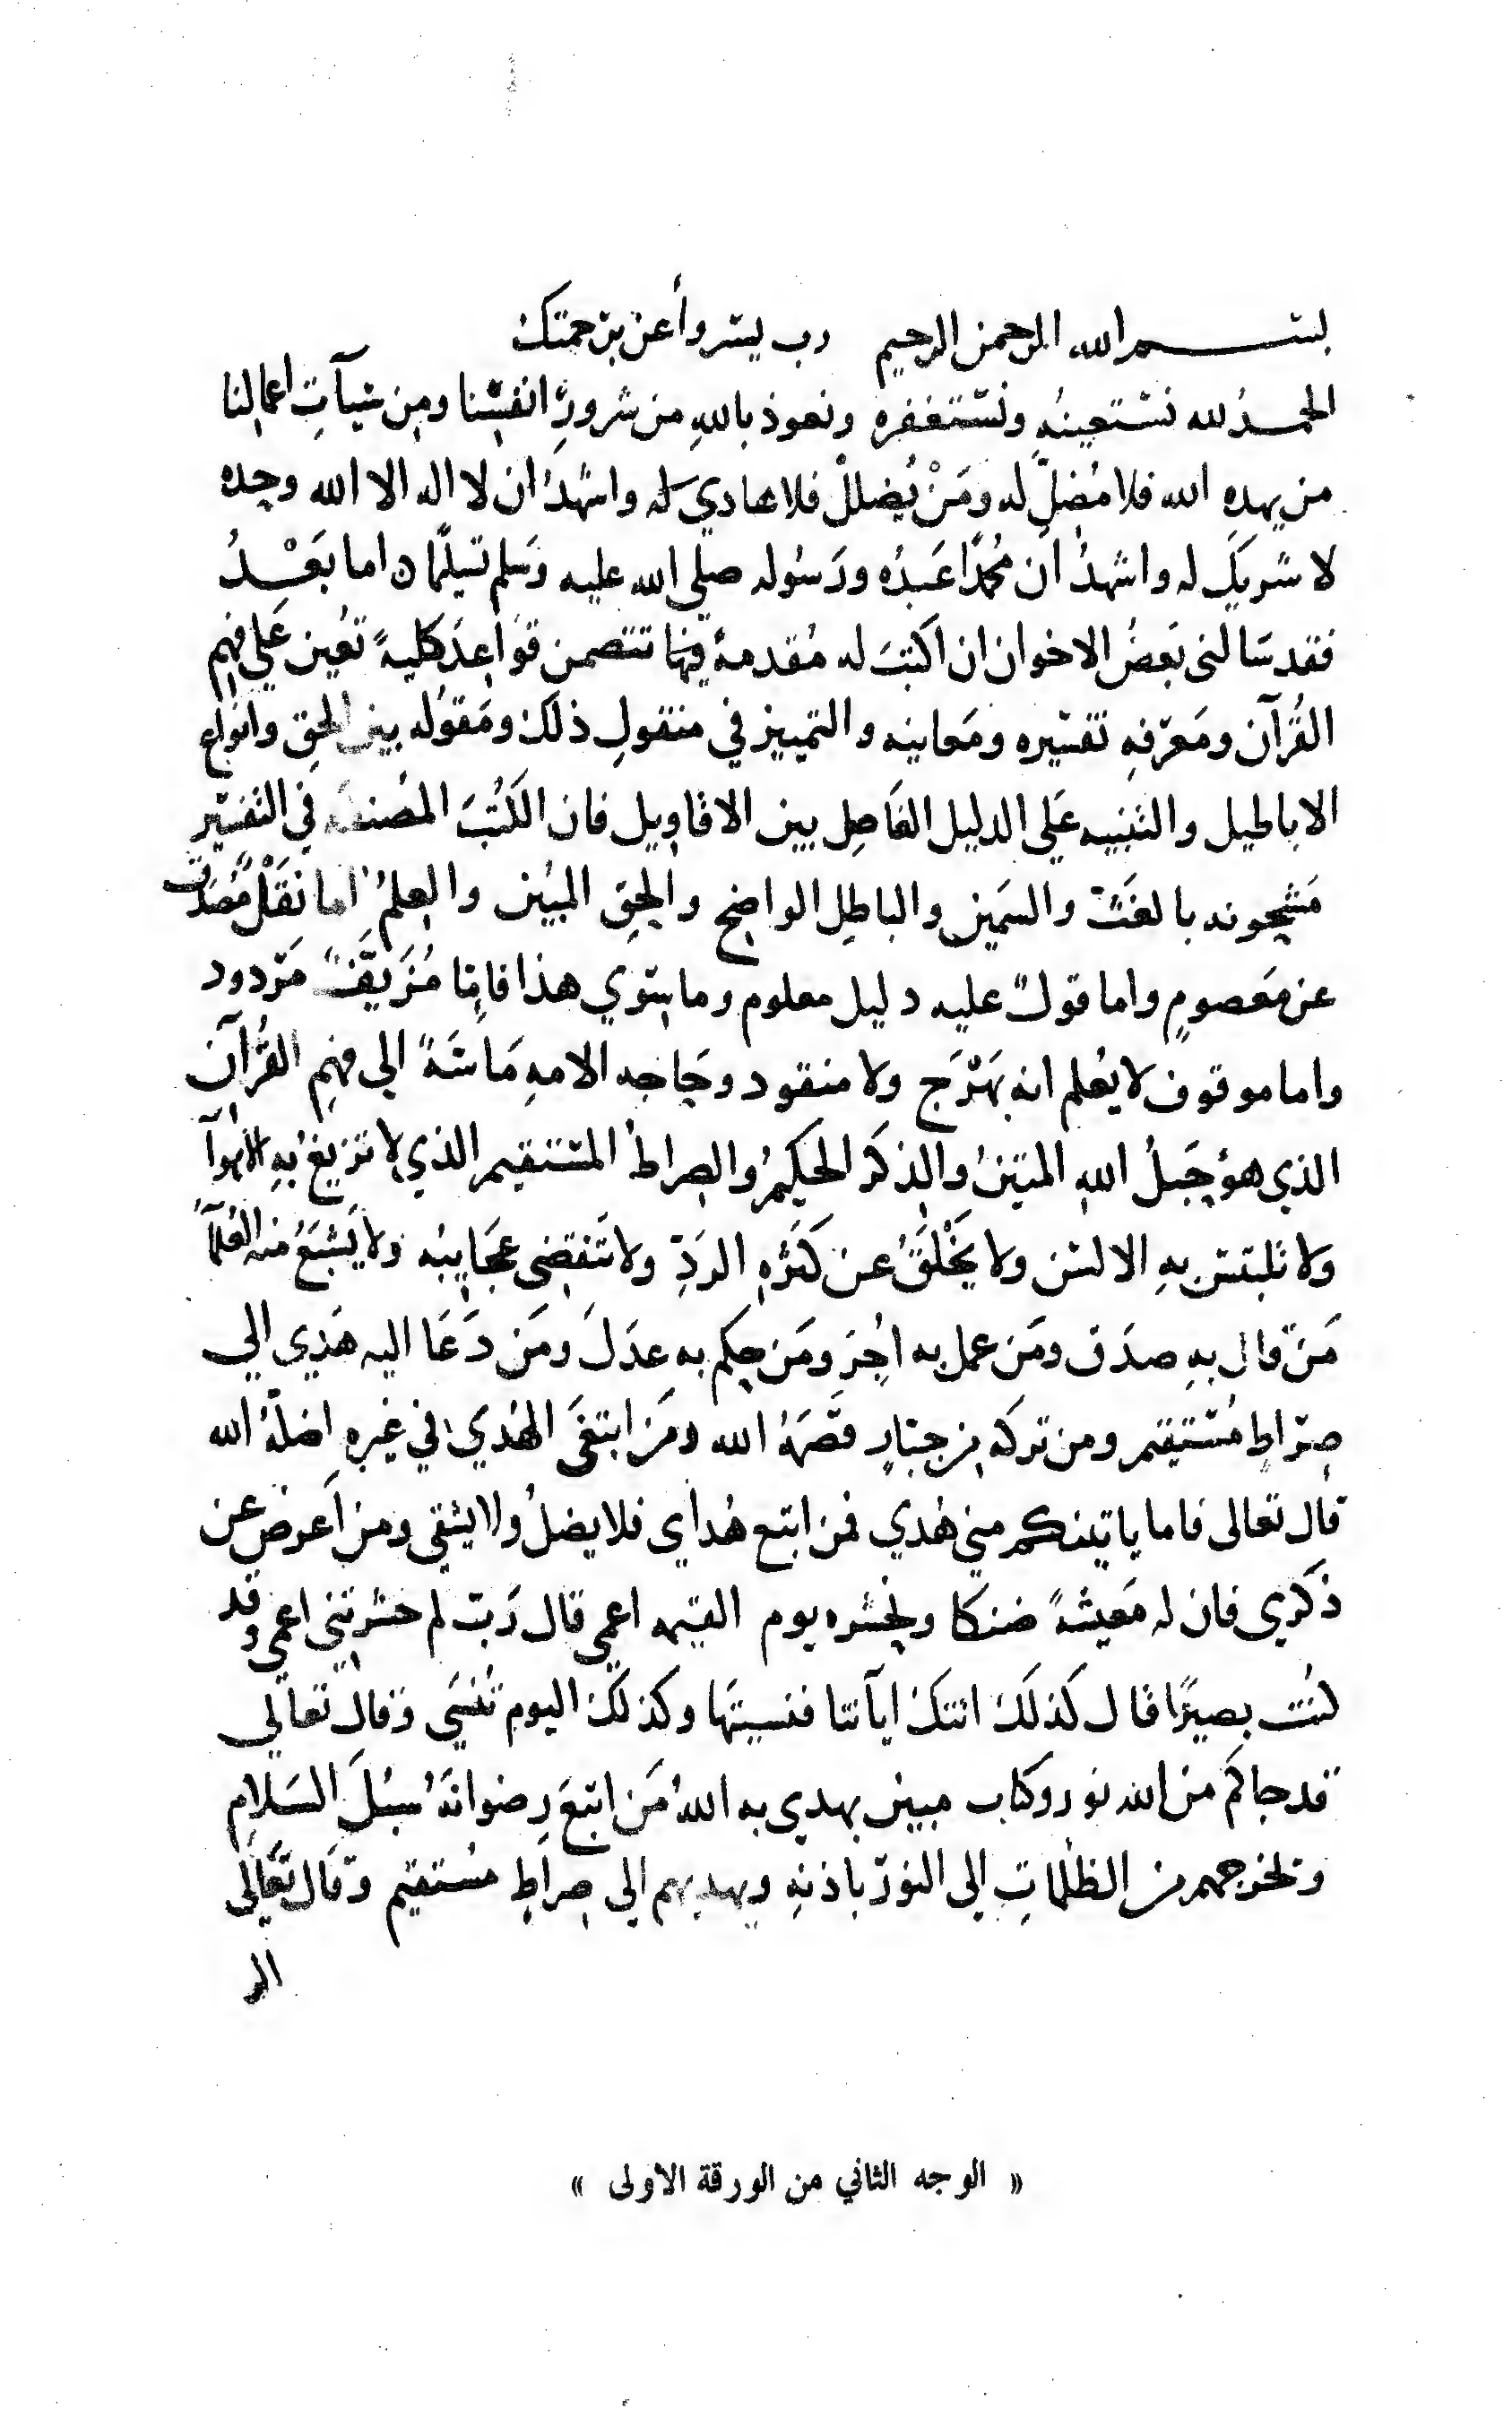 بسم الله الرحمن الرحيم رب يسر وأعن برحمتك
الحمدُ لله نستعينُه ونستغفره ونعوذ باللهِ من شرورِ انفسنا ومِن سيآتِ اعمالنا
من يهدهِ الله فلا مُضلّ له ومَنْ يُضللْ فلا هادي له واشهدُ ان لا اله الا الله وحده
لا شريكَ له واشهدُ ان محُمدًا عَبدُه ورَسُوله صلى الله عليه وَسَلم تسليمًا اما بَعْدُ
فقد سَالنى بَعضُ الاخوان ان اكتبَ له مُقدمةً تتضمن قوَاعِدَ كليةً تُعين عَلى فهمِ
القُرآن ومَعرفهِ تفسيره ومَعانيه والتمييز في منقولِ ذلك ومَعقوُله بين الحقِ وانواعِ
الاباطيل والتنبيه عَلى الدليل الفَاصِل بين الاقاويل فان الكُتُبَ المصُنفه في التفسير
مَشحونه بالغَثّ والسَمين والباطلِ الواضح والحقِ المبُين والعلمُ اما نَقْلٌ مُصَدَّق
عن مَعصومٍ واما قولٌ عليه دليل معلوم وما سِوي هذا فاِما مُزَيَّفٌ مَردود
واما موقوف لا يعُلم انه بَهْرَج ولا منقود وحَاجه الامهِ مَاسَّةٌ الى فهمِ القُرآن
الذي هوُ حَبلُ اللهِ المتينُ والذِكرُ الحَكيمُ والصراطُ المستقيم الذي لا تزيغُ بهِ الاهوآ
ولا تلبتس بهِ الالسُن ولا يَخْلَقُ عن كَثرَهِ الردِّ ولا تَنقضى عجَايبُه ولا يَشبَعُ منه العُلَمآُ
مَن قال بهِ صدَق ومَن عمل به اُجِرَ ومَن حكم به عدَلَ ومَن دَعَا اليه هَدِي الي
صِراطٍ مُستقيم ومن تركه مِن جبَارٍ قصَمهُ الله ومَن ابتغَى الهُدي في غيرهِ اضلّهُ الله
قال تعالى فاما ياتينكم مني هُدي فمن اتبع هُداي فلا يضلُ ولا يشقي ومن اَعرض عن
ذكرِي فان له مَعيشةً ضنكا ونحشره يوم القيمه اعمي قال رَبّ لم حشرتني اعمي وقد
كنُت بصيرًا قال كَذلَك اتتكَ ايآتنا فنسيتَها وكذلَك اليوم تُنسَى وقالَ تعالي
قد جاكم من الله نور وكتاب مبين يهدي به اللهُ مَن اتبَعَ رِضوانَهُ سُبُلَ السَلامِ
ويخرجهم من الظلماتِ الى النورِ باذنهِ ويهديهم الى صِراطٍ مسُتقيم وقَال تَعَالى
الر
« الوجه الثاني من الورقة الأولى »